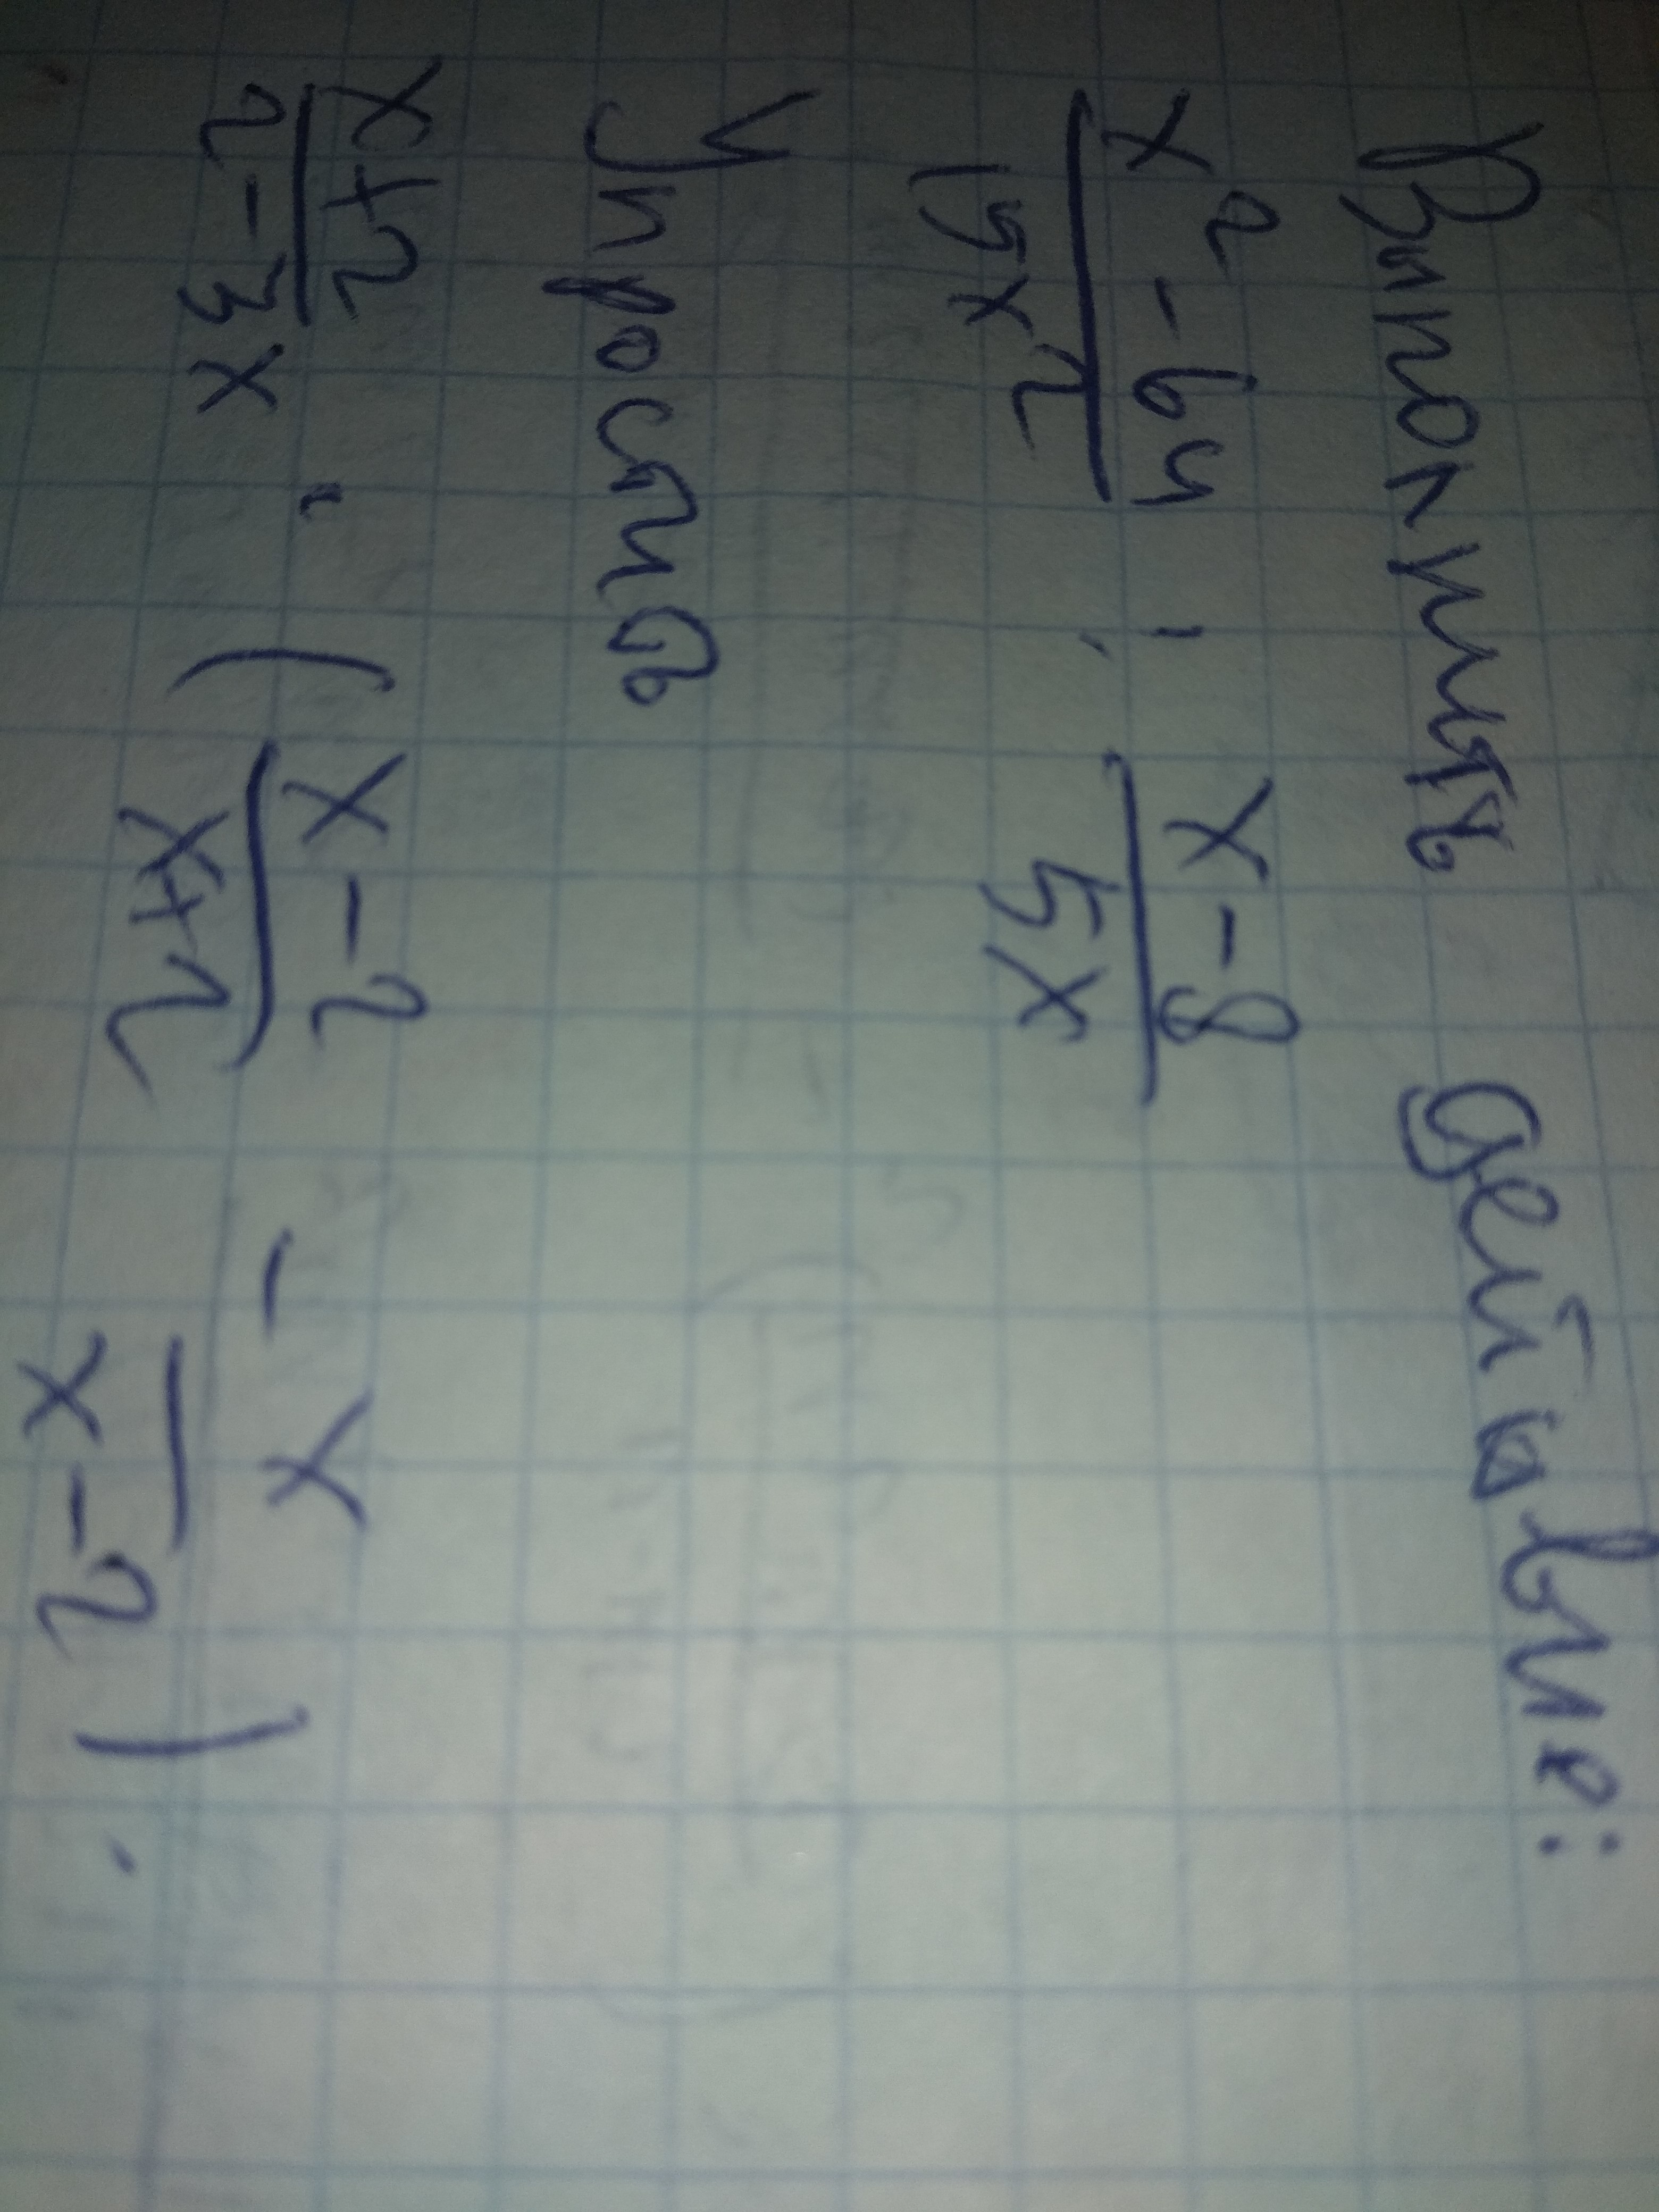 Выполнить действие:
x² - 64 / 15x² : x - 8 / 5x
Упростить
x + 2 / 2 - 3x · ( x - 2 / x + 2 - x / x - 2 ) .